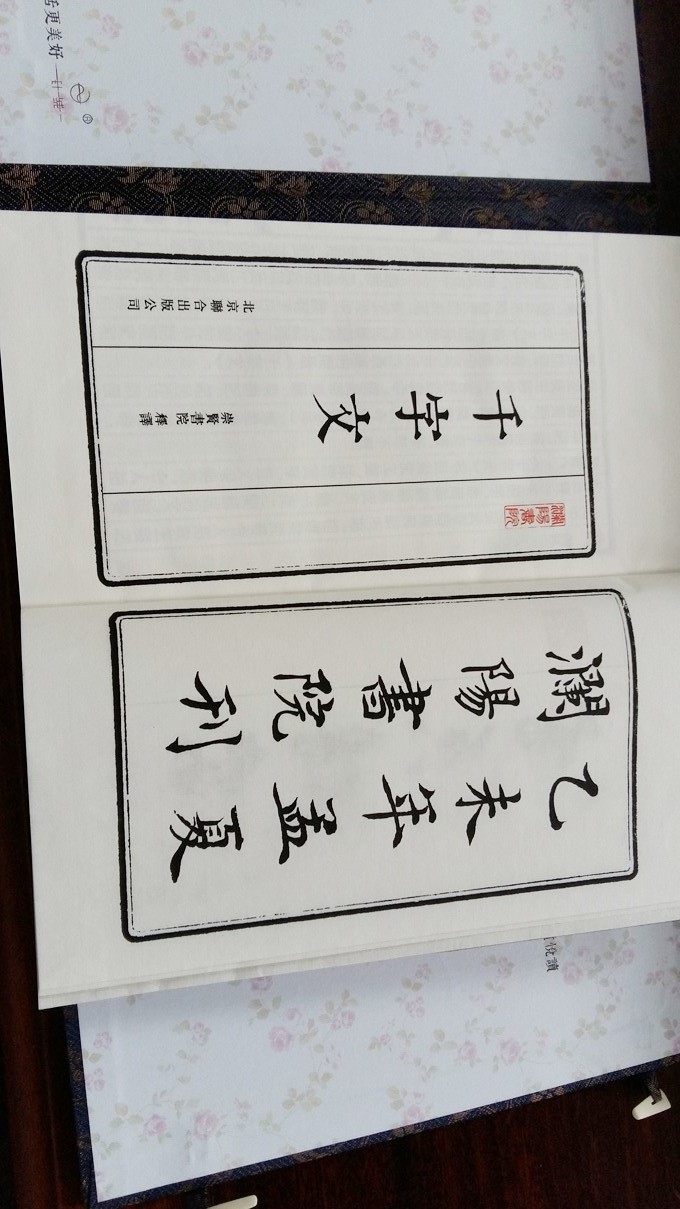 乙未年孟夏
瀾陽書院刊
瀾陽書院
千字文
崇賢書院 釋譯
北京聯合出版公司
更美好
悅讀